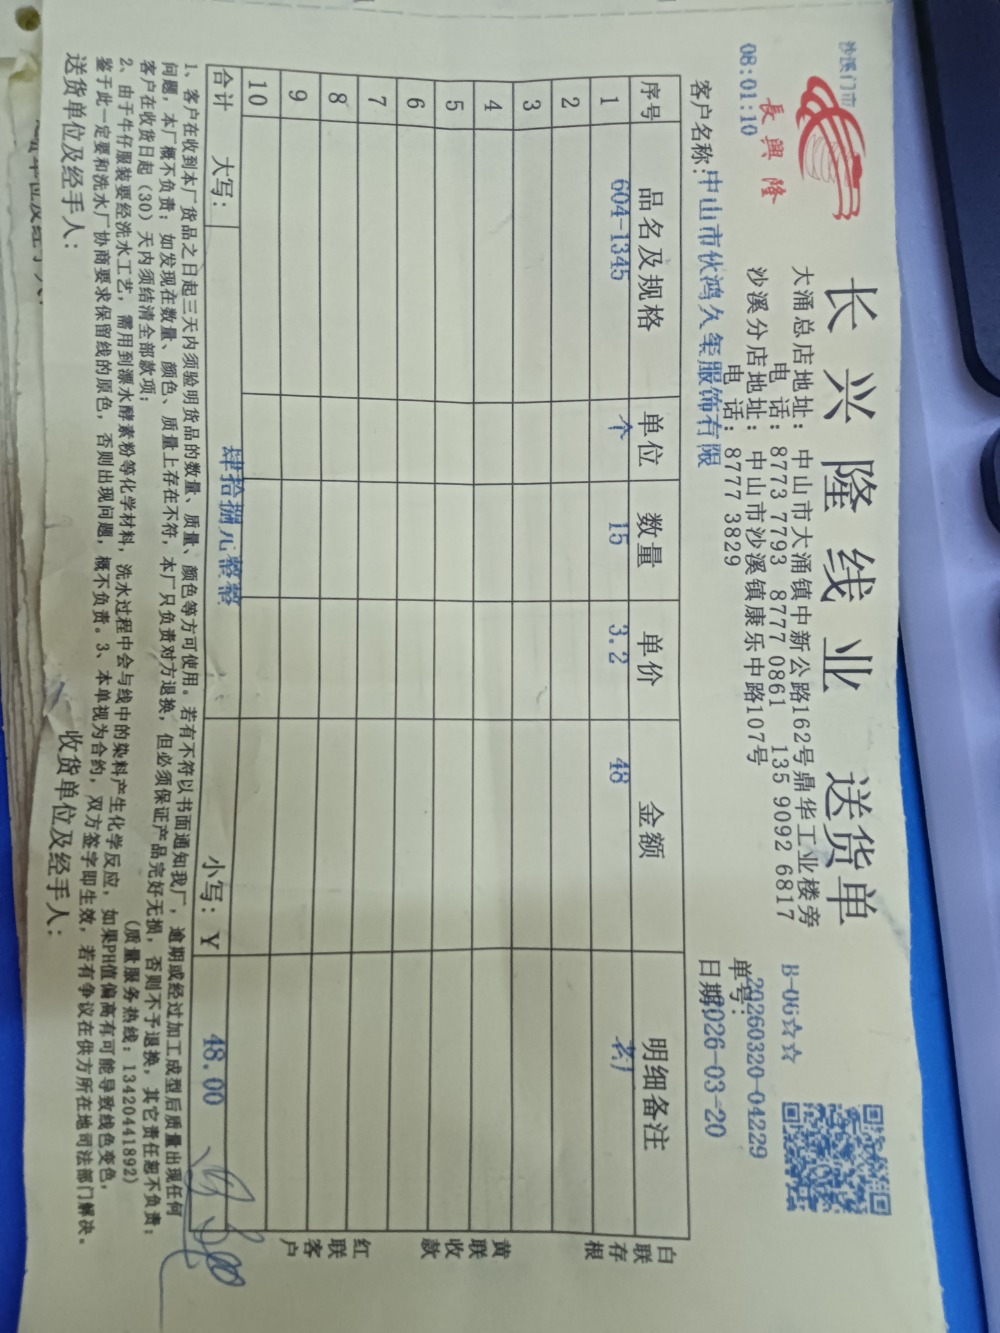 沙溪门市
08:01:10
長興隆
长兴隆线业 送货单
大涌总店地址：中山市大涌镇中新公路162号鼎华工业楼旁
电 话：8773 7793 8777 0861 135 9092 6817
沙溪分店地址：中山市沙溪镇康乐中路107号
电 话：8777 3829
B-06☆☆
单号：20260320-04229
客户名称：中山市伙鸿久玺服饰有限
日期：2026-03-20
序号 品名及规格 单位 数量 单价 金额 明细备注
1 604-1345 个 15 3.2 48
2
3
4
5
6
7
8
9
10
合计 大写：肆拾捌元整整 小写：￥ 48.00
白联存根
黄联收款
红联客户
1、客户在收到本厂货品之日起三天内须验明货品的数量、质量、颜色等方可使用。若有不符以书面通知我厂，逾期或经过加工成型后质量出现任何
问题，本厂概不负责；如发现在数量、颜色、质量上存在不符，本厂只负责对方退换，但必须保证产品完好无损，否则不予退换，其它责任恕不负责；
客户在收货日起（30）天内须结清全部款项；（质量服务热线：13420441892）
2、由于牛仔服装要经洗水工艺，需用到漂水酵素粉等化学材料，洗水过程中会与线中的染料产生化学反应，如果PH值偏高有可能导致线色变色，
鉴于此一定要和洗水厂协商要求保留线的原色，否则出现问题，概不负责。3、本单视为合约，双方签字即生效，若有争议在供方所在地司法部门解决。
送货单位及经手人： 收货单位及经手人：